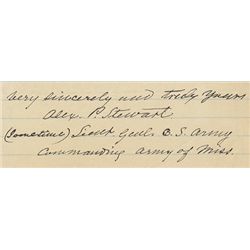 Very sincerely and truly yours
Alex. P. Stewart
(sometime) Lieut. Genl. C. S. Army
Commanding Army of Miss.